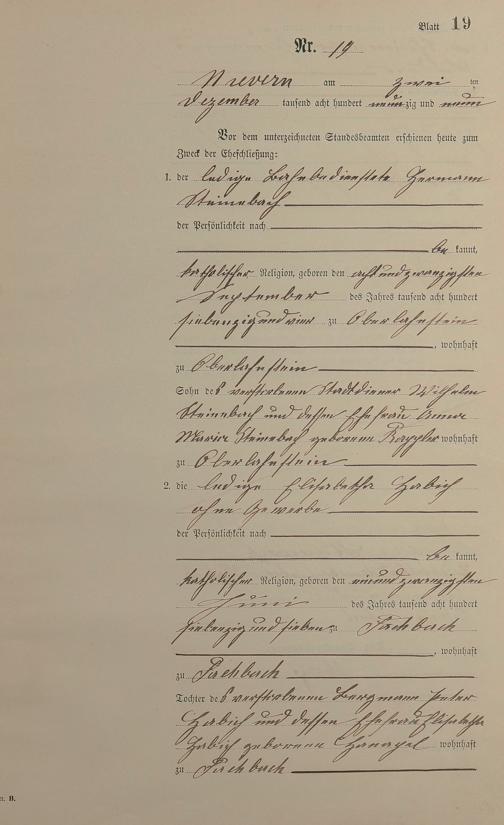 Blatt 19
Nr. 19
Nievern am zwei ten
Dezember tausend acht hundert neunzig und neun
Vor dem unterzeichneten Standesbeamten erschienen heute zum
Zweck der Eheschließung:
1. der ledige Bahnbedienstete Hermann
Steinebach
der Persönlichkeit nach
be kannt,
katholischer Religion, geboren den achtundzwanzigsten
September des Jahres tausend acht hundert
siebenzigundvier zu Oberlahnstein
, wohnhaft
zu Oberlahnstein
Sohn des verstorbenen Stadtdiener Wilhelm
Steinebach und dessen Ehefrau Anna
Maria Steinebach geborene wohnhaft
zu Oberlahnstein
2. die ledige Elisabetha Habich
ohne Gewerbe
der Persönlichkeit nach
be kannt,
katholischer Religion, geboren den einundzwanzigsten
Juni des Jahres tausend acht hundert
siebenzig und sieben zu Fachbach
, wohnhaft
zu Fachbach
Tochter des verstorbenen Bergmann Peter
Habich und dessen Ehefrau Elisabetha
Habich geborene wohnhaft
zu Fachbach
B.